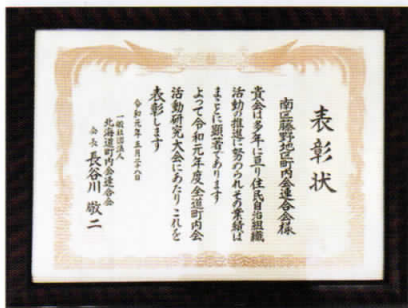 表彰状
南区藤野地区町内会連合会様
貴会は多年に亘り住民自治組織
活動の推進に努められその業績は
まことに顕著であります
よって令和元年度全道町内会
活動研究大会にあたりこれを
表彰します
令和元年五月二十八日
一般社団法人
北海道町内会連合会
会長 長谷川敬二